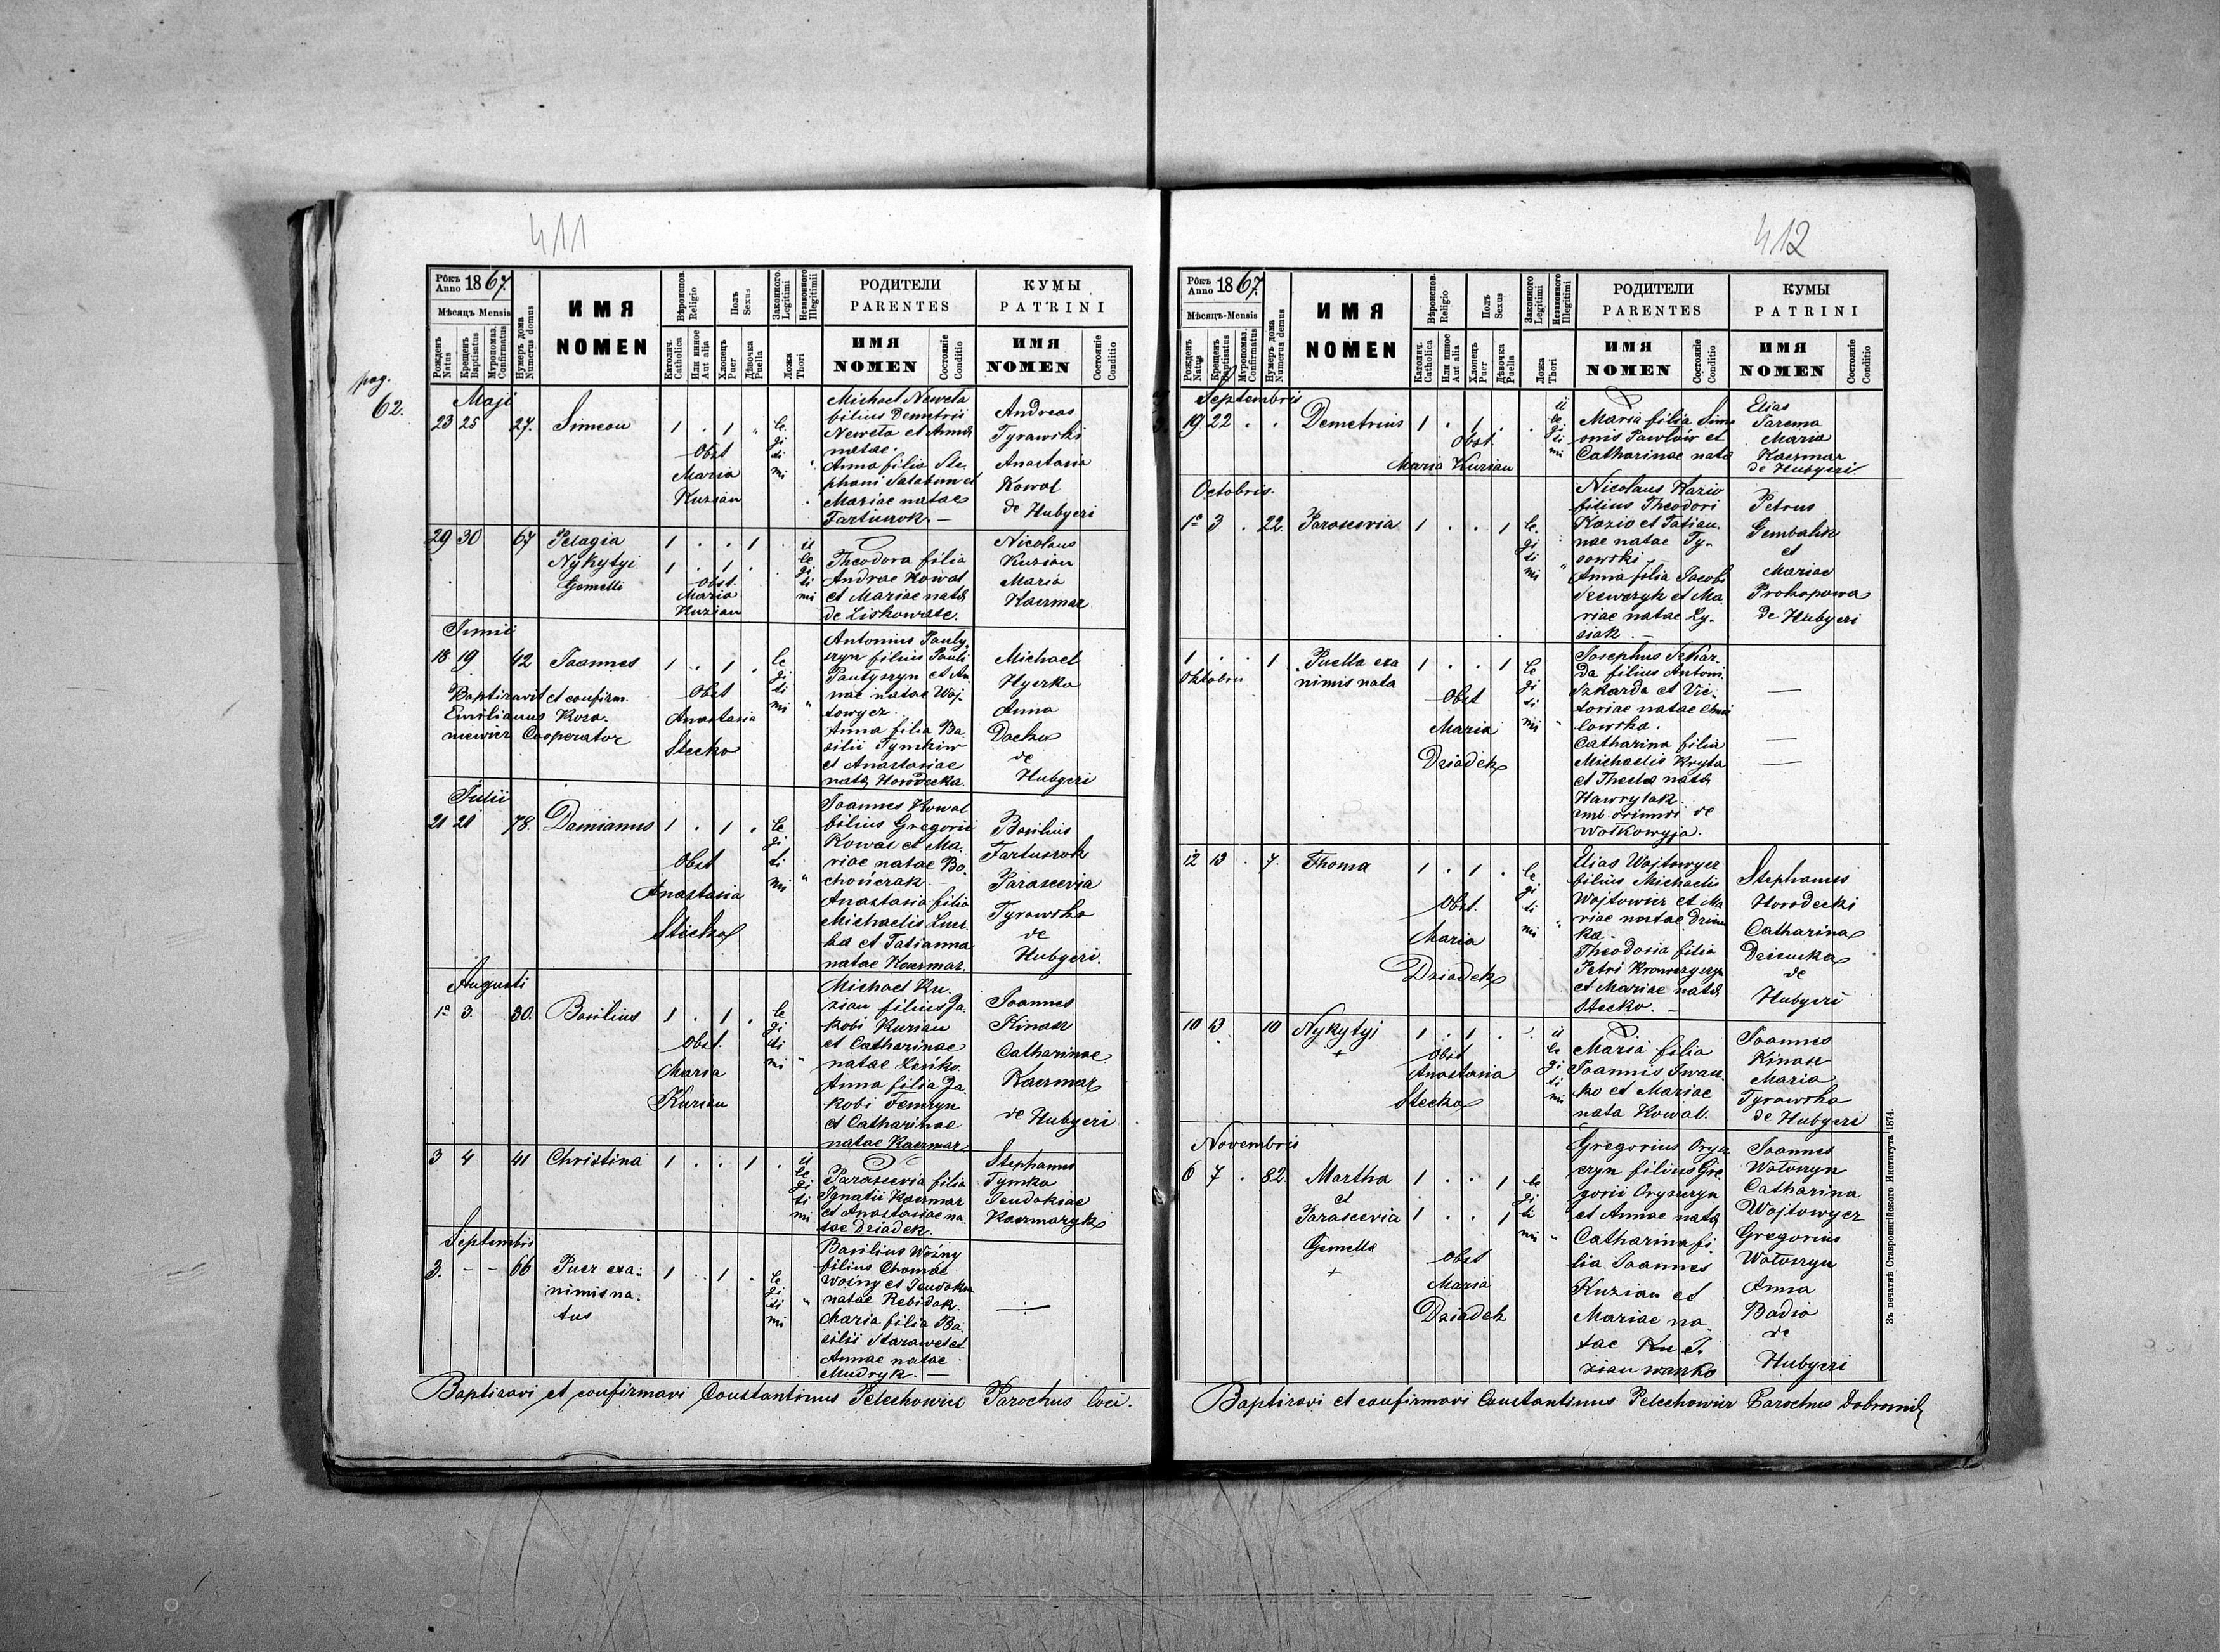 411
pag.
62.
Рôкъ
Anno 1867.
Мѣсяцъ Mensis
Рожденъ
Natus
Крещенъ
Baptisatus
Муропомаз.
Confirmatus
Нумеръ дома
Numerus domus
ИМЯ
NOMEN
Вѣроиспов.
Religio
Католич.
Catholica
Или иное
Aut alia
Полъ
Sexus
Хлопець
Puer
Дѣвочка
Puella
Законного
Legitimi
Незаконного
Illegitimii
Ложа
Thori
РОДИТЕЛИ
PARENTES
ИМЯ
NOMEN
Состоянiе
Conditio
КУМЫ
PATRINI
ИМЯ
NOMEN
Состоянiе
Conditio
Maji
23 25 27. Simeon 1 . 1 "
Obst
Maria
Kuzian
le
gi
ti
mi "
Michael Neweta
filius Demetrii
Neweta et Annae
natae.
Anna filia Ste
phani Salabun et
Mariae natae
Fartuszok. —
Andreas
Tyrawski
Anastasia
Kowal
de Hubyeri
29 30 67 Pelagia 1 . . 1
Nykytyi 1 . 1 .
Gemelli
Obst.
Maria
Kuzian
il
le
gi
ti
mi
Theodora filia
Andrae Kowal
et Mariae natae
de Liskowate.
Nicolaus
Kuzian
Maria
Kaczmar
Junii
18 19 42 Joannes 1 . 1 .
Baptizavit et confirm.
Emilianus
Cooperator
Obst
Anastasia
Stecko
le
gi
ti
mi "
Antonius Pauly
szyn filius Pauli
Paulyszyn et An
nae natae Woj-
towycz.
Anna filia Ba
silii Tymkiw
et Anastasiae
natae Horodecka.
Michael
Hyrko
Anna
Dacko
de
Hubyeri
Julii
21 21 78. Damianus 1 . 1 .
Obst
Anastasia
Stecko
le
gi
ti
mi "
Joannes Kowal
filius Gregorii
Kowal et Ma.
riae natae Bo.
chończak.
Anastasia filia
Michaelis
et Tatianna
natae Kaczmar.
Basilius
Fartuszok
Parascevia
Tyrawska
de
Hubyeri.
Augusti
1a 3. 30. Basilius 1 . 1 .
Obst.
Maria
Kuzian
le
gi
ti
mi "
Michael Ku.
zian filius Ja.
kobi Kuzian
et Catharinae
natae Leńko.
Anna filia Ja.
kobi Femczyn
et Catharinae
natae Kaczmar.
Joannes
Kinasz
Catharinae
Kaczmar
de Hubyeri
3 4 41 Christina 1 . . 1 .
il
le
gi
ti
mi
Parascevia filia
Ignatii Kaczmar
et Anastasiae na
tae Dziadek.
Stephanus
Tymko
Jeudokiae
Kaczmaryk
Septembris
3. - - 66 Puer exa- 1 . 1 .
nimis na.
tus
le
gi
ti
mi "
Basilius Woźny
filius Thomae
Woźny et Jeudokia
natae Rebidak.
Maria filia Ba.
silii Starawet et
Annae natae
Mudryk. —
—
Baptizavi et confirmavi Constantinus Pelechowicz Parochus loci.
412
Рôкъ
Anno 1867.
Мѣсяцъ-Mensis
Рожденъ
Natus
Крещенъ
Baptisatus
Муропомаз.
Confirmatus
Нумеръ дома
Numerus domus
ИМЯ
NOMEN
Вѣроиспов.
Religio
Католич.
Catholica
Или иное
Aut alia
Полъ
Sexus
Хлопець
Puer
Дѣвочка
Puella
Законного
Legitimi
Незаконного
Illegitimi
Ложа
Thori
РОДИТЕЛИ
PARENTES
ИМЯ
NOMEN
Состоянiе
Conditio
КУМЫ
PATRINI
ИМЯ
NOMEN
Состоянiе
Conditio
Septembris
19 22 . . Demetrius 1 . 1 .
Obst.
Maria Kuzian
il
le
gi
ti
mi
Maria filia Sime
onis Pawlów et
Catharinae nata
Elias
Jarema
Maria
Kaczmar
de Hubyeri
Octobris.
1a 3 . 22. Parascevia 1 . . 1
le
gi
ti
mi "
Nicolaus Kazio
filius Theodori
Kozio et Tatian.
nae natae Ty-
sowski —
Anna filia Jacobi
Szewczyk et Ma
riae natae Ly-
siak. —
Petrus
Gembalik
et
Mariae
Prokopowa
de Hubyeri
1 . . 1 Puella exa 1 . . 1
Oktobris nimis nata
Obst
Maria
Dziadek
le
gi
ti
mi "
Josephus Szkar.
da filius Antoni
Szkarda et Vic-
toriae natae
lowska.
Catharina filia
Michaelis Kryta
et Thecla natae
Hawrylak.
amb. oriundi de
Wołkowyja.
—
—
—
12 13 . 7. Thoma 1 . 1 .
Obst.
Maria
Dziadek
le
gi
ti
mi "
Elias Wojtowycz
filius Michaelis
Wojtowicz et Ma
riae natae Dziun
ka.
Theodosia filia
Petri
et Mariae natae
Stecko. —
Stephanus
Horodecki
Catharina
Dziunka
de
Hubyeri
10 13 10 Nykytyj 1 . 1 .
+
Obst
Anastasia
Stecko
il
le
gi
ti
mi
Maria filia
Joannis Iwan
ko et Mariae
nata Kowal.
Joannes
Kinasz
Maria
Tyrawska
de Hubyeri
Novembris
6 7 . 82. Martha 1 . . 1
et
Parascevia 1 . . 1
Gemella
+
Obst
Maria
Dziadek
le
gi
ti
mi "
Gregorius Orysz
czyn filius Gre.
gorii Oryszczyn
et Annae natae
Catharina fi.
lia Joannes
Kuzian et
Mariae na.
tae Ku I.
zian wanko
Joannes
Wołoszyn
Catharina
Wojtowycz
Gregorius
Wołoszyn
Anna
Badio
de
Hubyeri
Baptizavi et confirmavi Constantinus Pelechowicz Parochus Dobromil
Зъ печатнѣ Ставропигійского Института 1874.